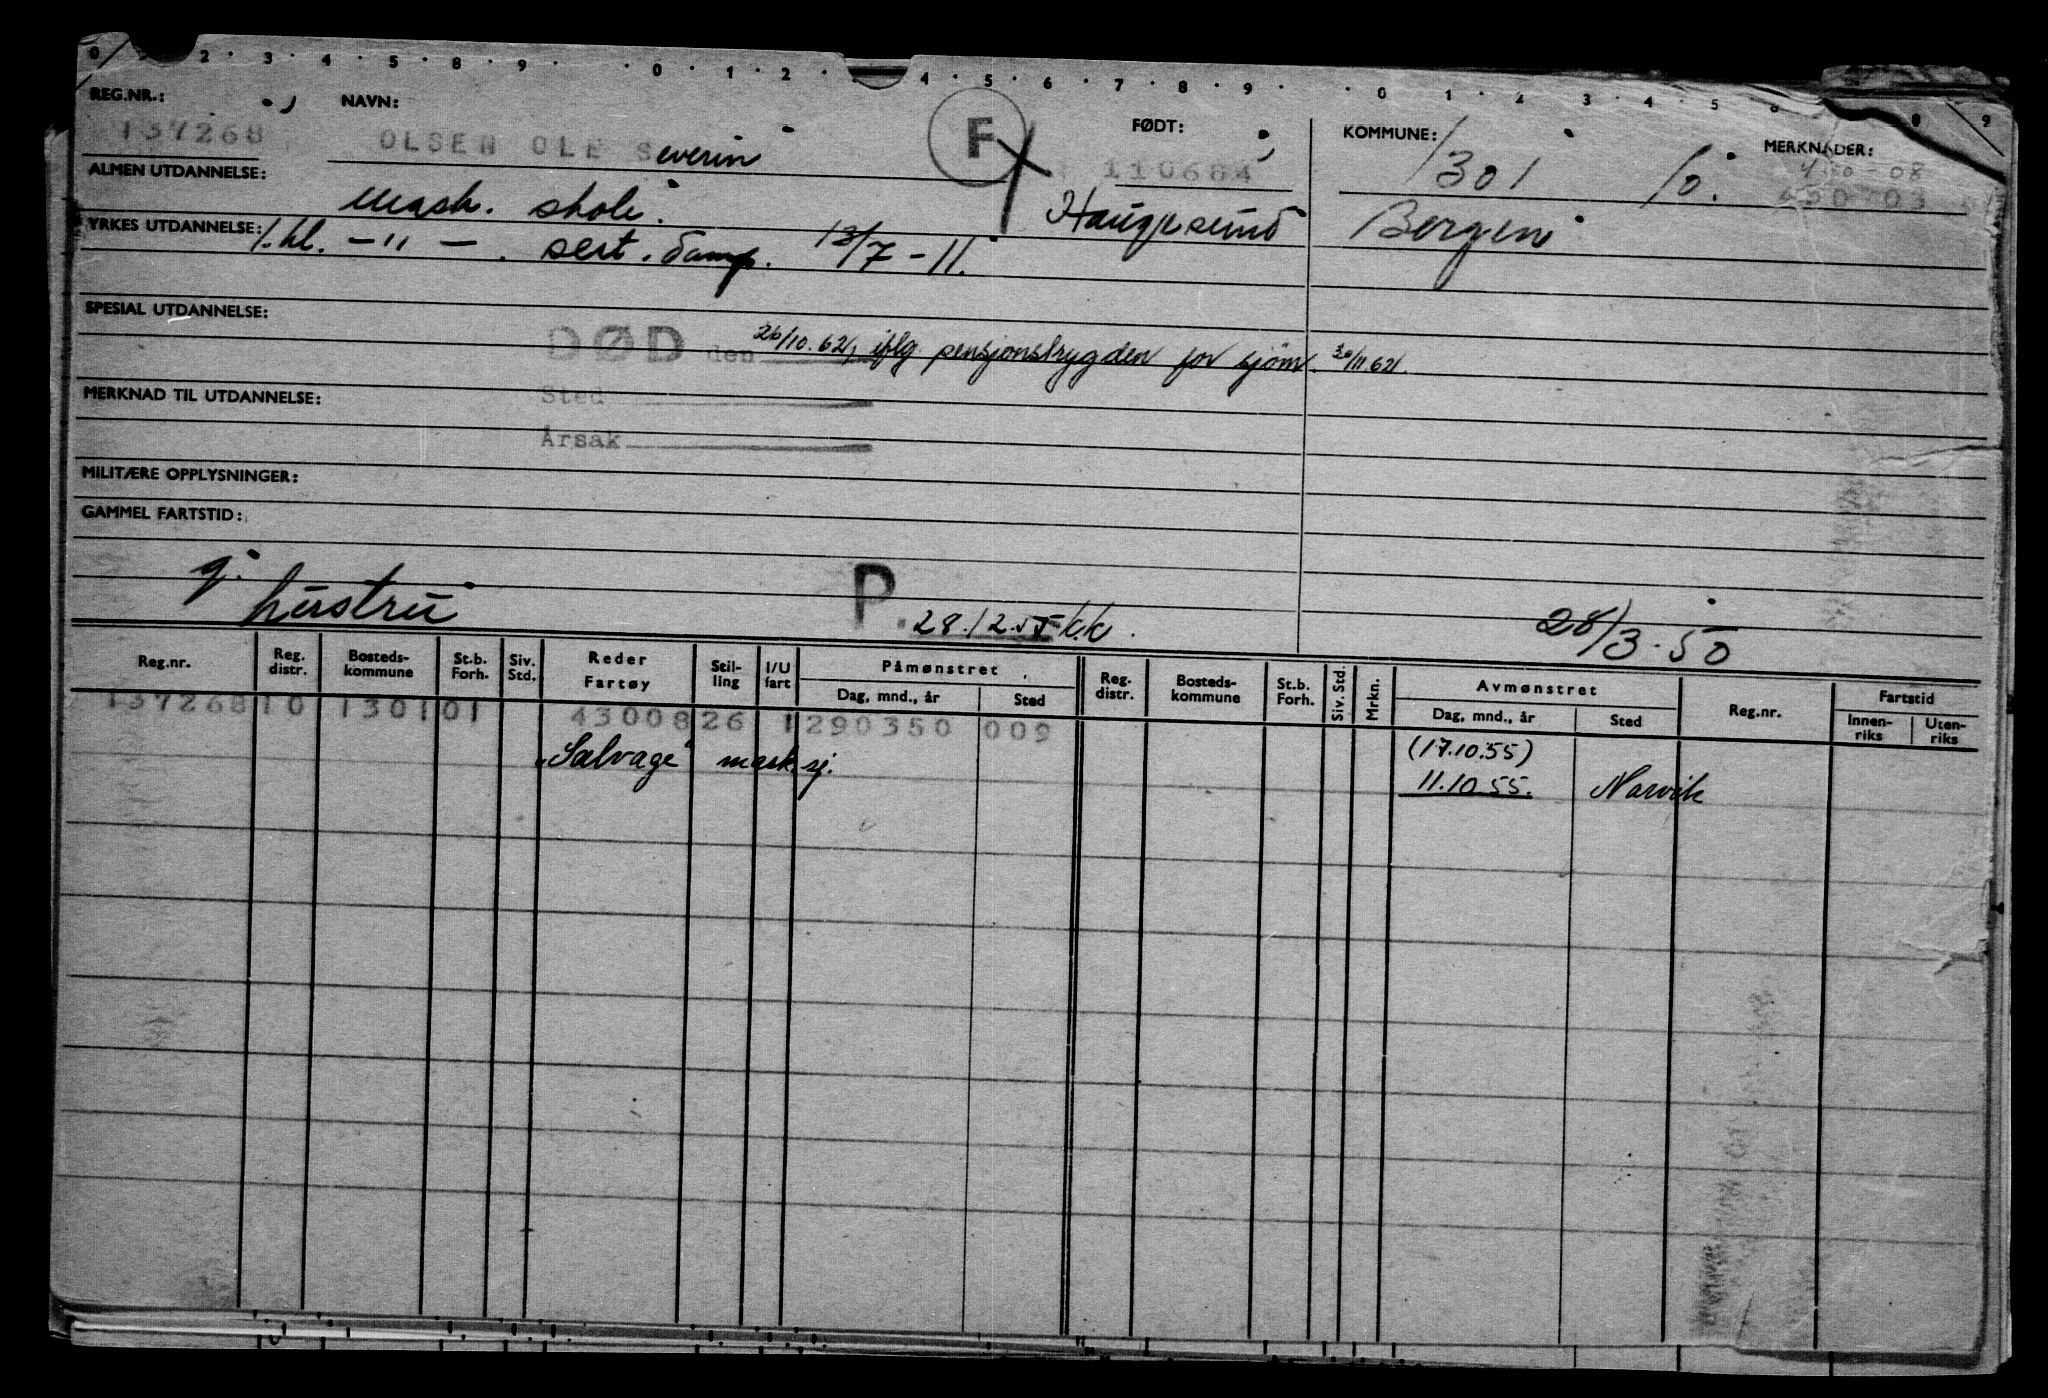 0 2 3 4 5 8 9 0 1 2 4 5 6 7 8 9 0 1 2 3 4 5 8 9
REG.NR.: NAVN: F FØDT: KOMMUNE: MERKNADER:
137268 OLSEN OLE Severin 110684 1301 10.
ALMEN UTDANNELSE: Haugesund Bergen
mask. skole
YRKES UTDANNELSE: 1.kl. -"- sert. damp. 13/7-11.
SPESIAL UTDANNELSE:
DØD den 26/10.62, iflg pensjonstrygden for sjøm. 30/11.62.
Sted
MERKNAD TIL UTDANNELSE:
Årsak
MILITÆRE OPPLYSNINGER:
GAMMEL FARTSTID:
g.
hustru P. 28.12.55 k.k. 28/3-50
Reg.nr. Reg. distr. Bosteds-kommune St.b. Forh. Siv. Std. Reder Fartøy Stil-ling I/U fart Påmønstret Dag, mnd., år Sted Reg. distr. Bosteds-kommune St.b. Forh. Siv. Std. Mrkn. Avmønstret Dag, mnd., år Sted Reg.nr. Fartstid Innen-riks Uten-riks
137268 10 1301 01 43008 26 1 290350 009
"Salvage" mask.sj. (17.10.55)
11.10.55. Narvik